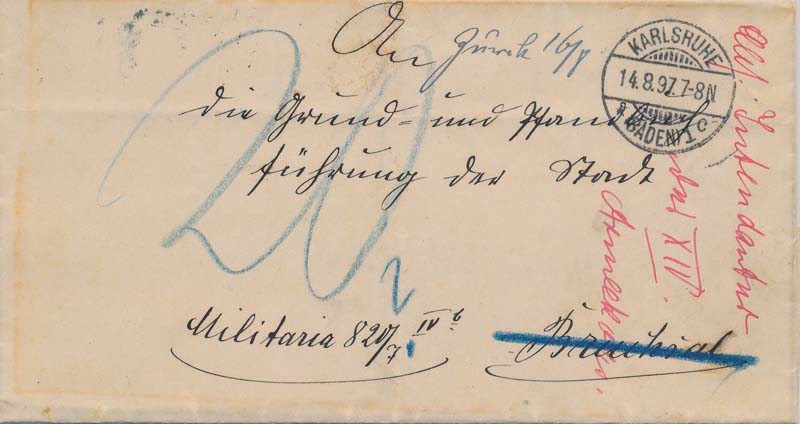 An Zürck 16/8
KARLSRUHE
14.8.97.7-8N
(BADEN) 1 c
die Grund- und Pfandbuch
führung der Stadt
20
Militaria 820/7 IV b
Bruchsal
Abt. Intendantur
des XIV.
Armeekorps.